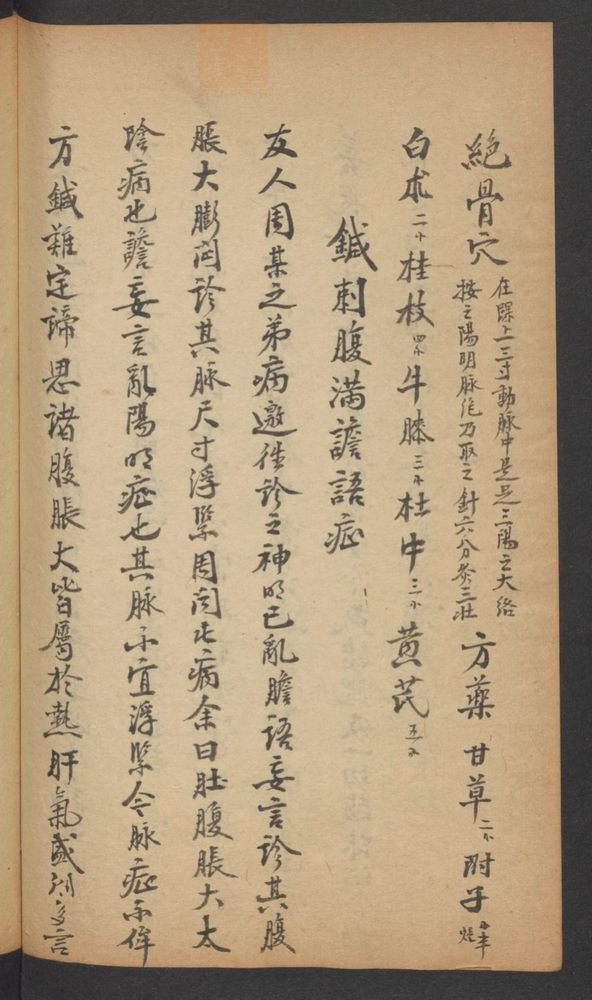 絕骨穴 在踝上三寸動脉中是足三陽之大絡
按之陽明脉絕乃取之針六分灸三壯 方藥 甘草二卜 附子
白朮二卜 桂枝四卜 牛膝三卜 杜中三卜 黃芪五卜
鍼刺腹滿譫語症
友人周某之弟病邀往診之神明已亂譫語妄言診其腹
脹大膨悶診其脉尺寸浮緊周問此病余曰肚腹脹大太
陰病也譫妄言亂陽明症也其脉不宜浮緊今脉症不侔
方鍼難定諦思諸腹脹大皆屬於熱肝氣盛則多言